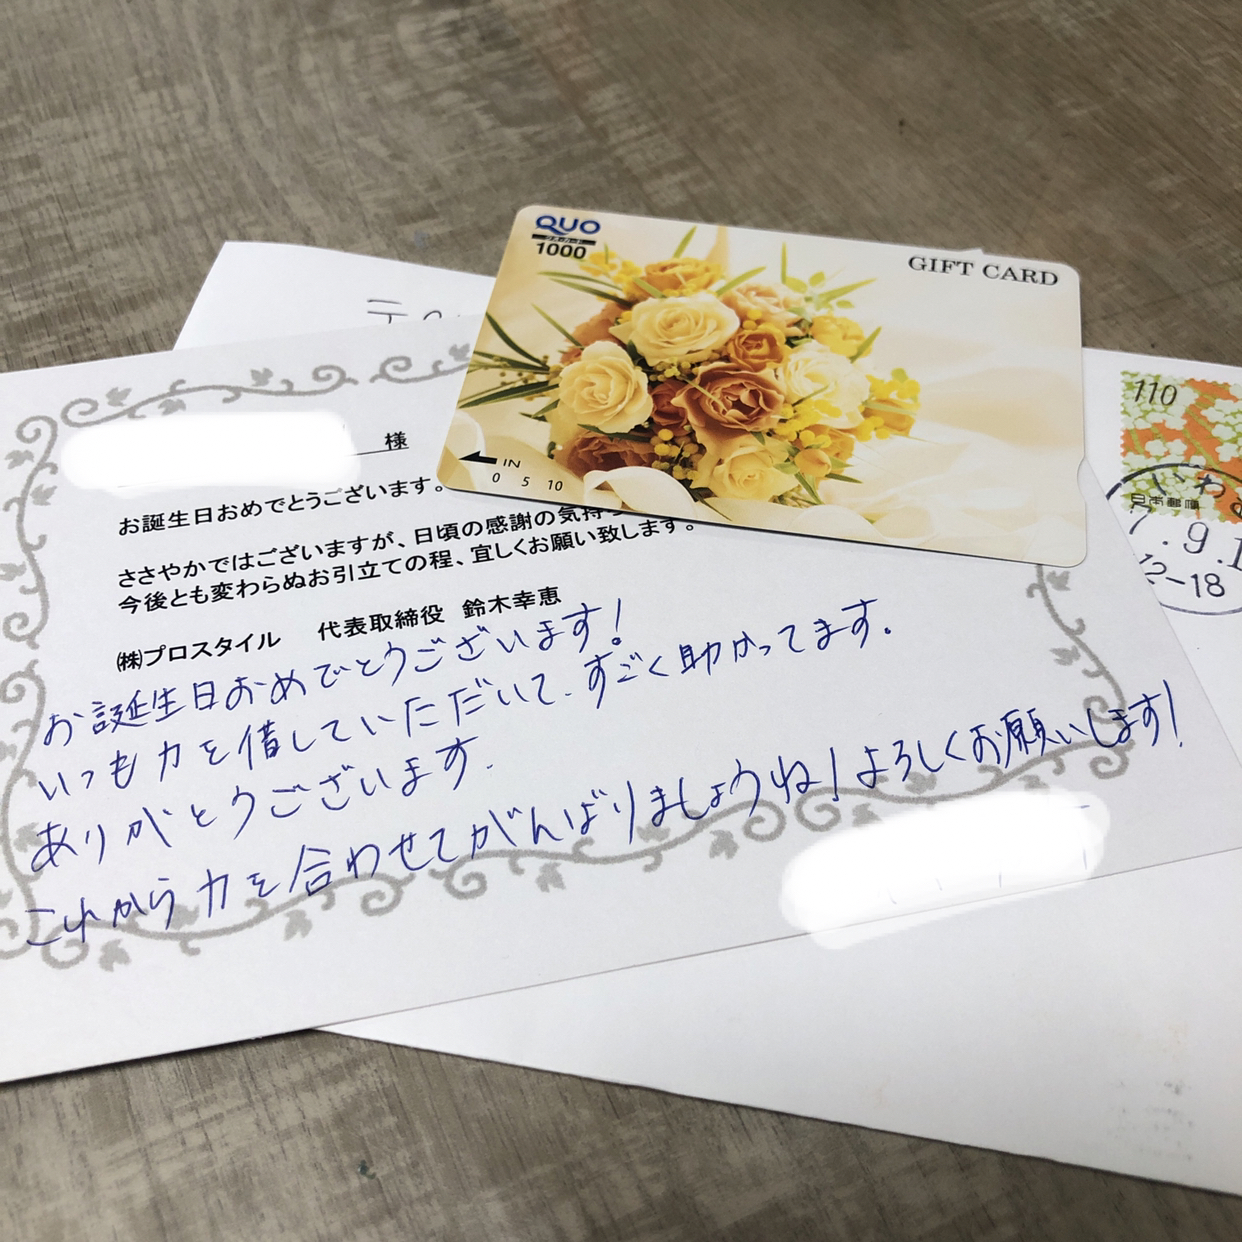 QUO
クオ・カード
1000
GIFT CARD
IN
0 5 10
110
日本郵便
7.9.1
12-18
様
お誕生日おめでとうございます。
ささやかではございますが、日頃の感謝の気持
今後とも変わらぬお引立ての程、宜しくお願い致します。
㈱プロスタイル 代表取締役 鈴木幸恵
お誕生日おめでとうございます!
いつも力を借していただいて、すごく助かってます。
ありがとうございます.
これから力を合わせてがんばりましょうね!よろしくお願いします!